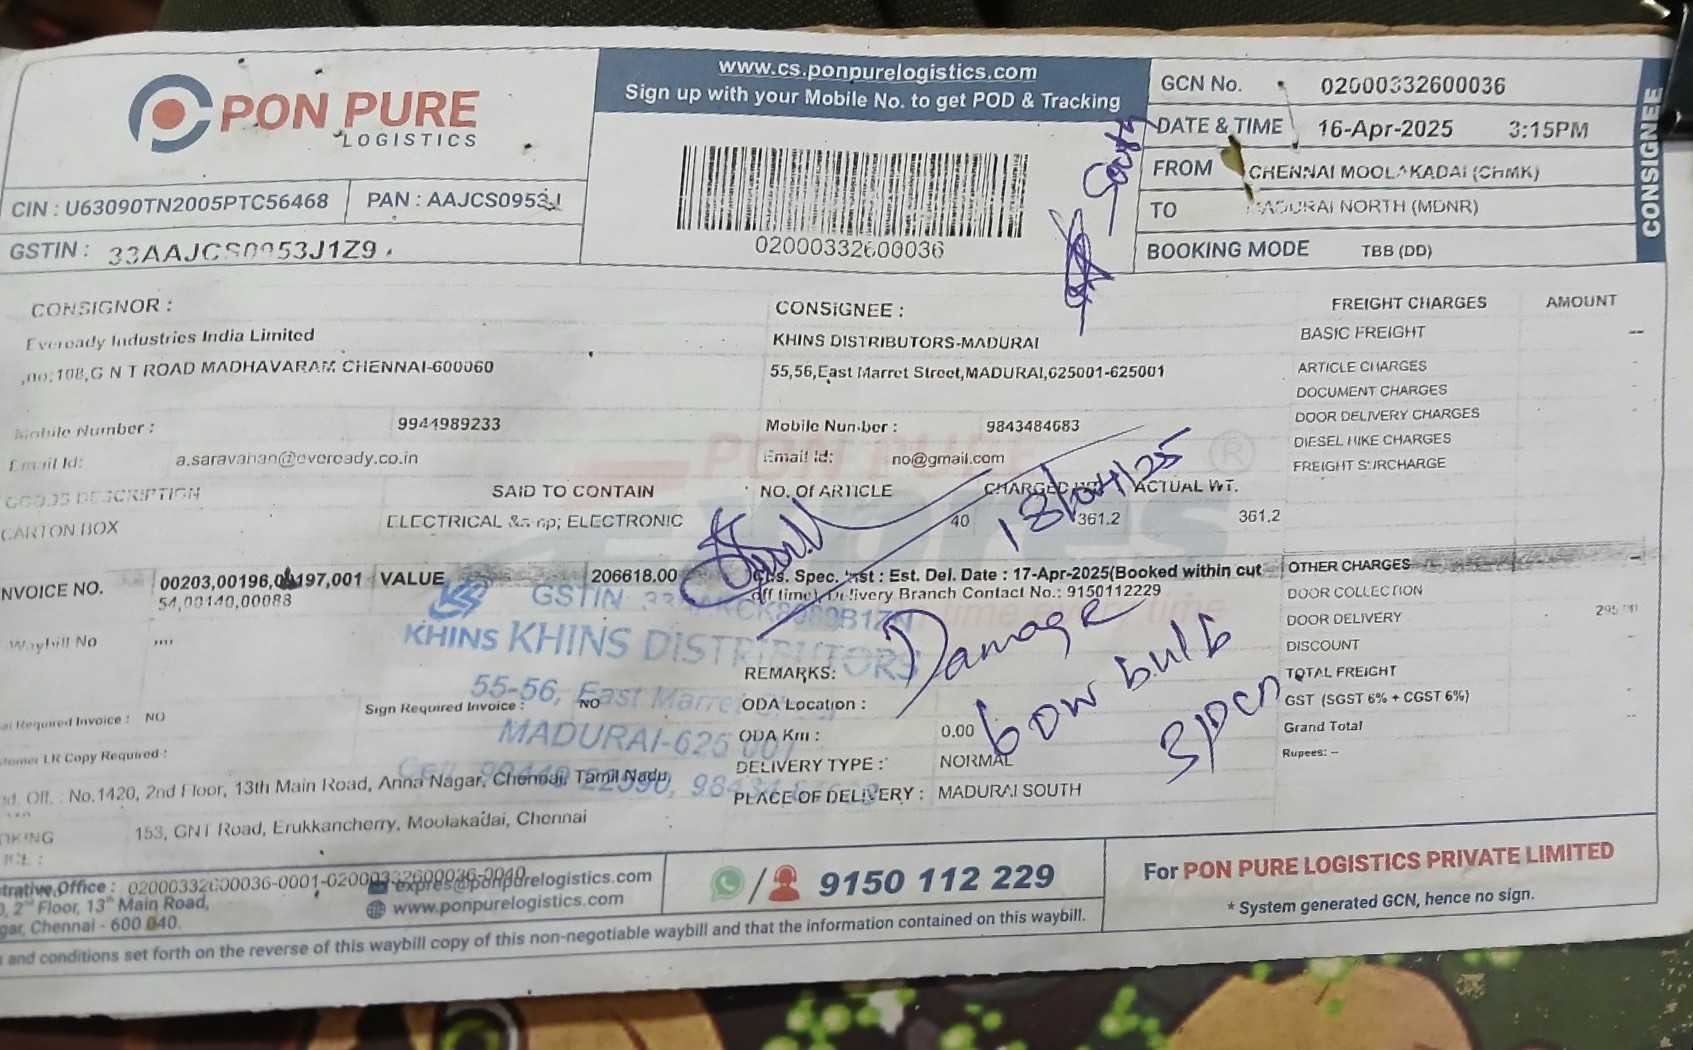 PON PURE
LOGISTICS
CIN : U63090TN2005PTC56468
PAN : AAJCS0953J
GSTIN : 33AAJCS0953J1Z9
www.cs.ponpurelogistics.com
Sign up with your Mobile No. to get POD & Tracking
02000332600036
GCN No. 02000332600036
DATE & TIME 16-Apr-2025 3:15PM
FROM CHENNAI MOOLAKADAI (CHMK)
TO MADURAI NORTH (MDNR)
BOOKING MODE TBB (DD)
CONSIGNEE
CONSIGNOR :
Eveready Industries India Limited
,no:108,G N T ROAD MADHAVARAM CHENNAI-600060
Mobile Number : 9944989233
Email Id: a.saravanan@eveready.co.in
CONSIGNEE :
KHINS DISTRIBUTORS-MADURAI
55,56,East Marret Street,MADURAI,625001-625001
Mobile Number : 9843484683
Email Id: no@gmail.com
FREIGHT CHARGES AMOUNT
BASIC FREIGHT --
ARTICLE CHARGES -
DOCUMENT CHARGES -
DOOR DELIVERY CHARGES -
DIESEL HIKE CHARGES -
FREIGHT SURCHARGE -
GOODS DESCRIPTION SAID TO CONTAIN NO. Of ARTICLE CHARGED WT. ACTUAL WT.
CARTON BOX ELECTRICAL &nbsp; ELECTRONIC 40 361.2 361.2
18/04/25
NVOICE NO. 00203,00196,00197,001
54,00140,00088
VALUE 206618.00
Cus. Spec. Inst : Est. Del. Date : 17-Apr-2025(Booked within cut
off time), Delivery Branch Contact No.: 9150112229
OTHER CHARGES --
DOOR COLLECTION
DOOR DELIVERY
DISCOUNT
TOTAL FREIGHT
GST (SGST 6% + CGST 6%)
Grand Total --
Rupees: --
Waybill No ,,,,
KHINS KHINS DISTRIBUTORS
55-56, East Marret
MADURAI-625 001
Required Invoice : NO
Sign Required Invoice : NO
LR Copy Required :
REMARKS:
Damage
60w bulb
3pcn
ODA Location :
ODA Km : 0.00
DELIVERY TYPE : NORMAL
PLACE OF DELIVERY : MADURAI SOUTH
Off. : No.1420, 2nd Floor, 13th Main Road, Anna Nagar, Chennai, Tamil Nadu,
153, GNT Road, Erukkancherry, Moolakadai, Chennai
trative Office : 02000332600036-0001-02000332600036-0040
2nd Floor, 13th Main Road,
gar, Chennai - 600 040.
expres@ponpurelogistics.com
www.ponpurelogistics.com
9150 112 229
For PON PURE LOGISTICS PRIVATE LIMITED
* System generated GCN, hence no sign.
and conditions set forth on the reverse of this waybill copy of this non-negotiable waybill and that the information contained on this waybill.